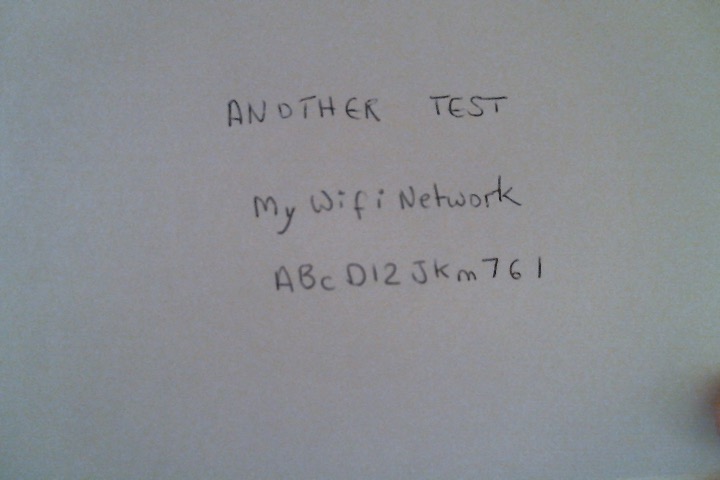 ANOTHER TEST
My Wifi Network
ABcD12JKm761